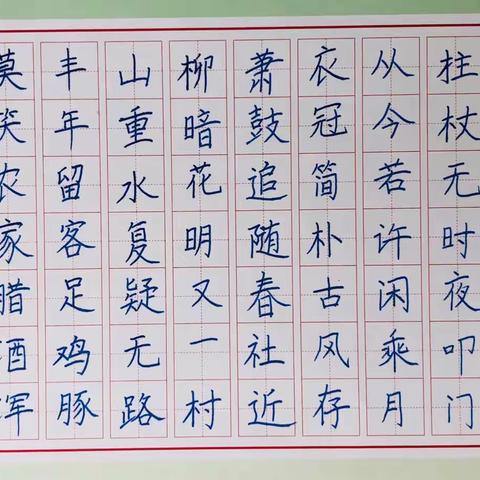 莫笑农家腊酒浑
丰年留客足鸡豚
山重水复疑无路
柳暗花明又一村
萧鼓追随春社近
衣冠简朴古风存
从今若许闲乘月
柱杖无时夜叩门